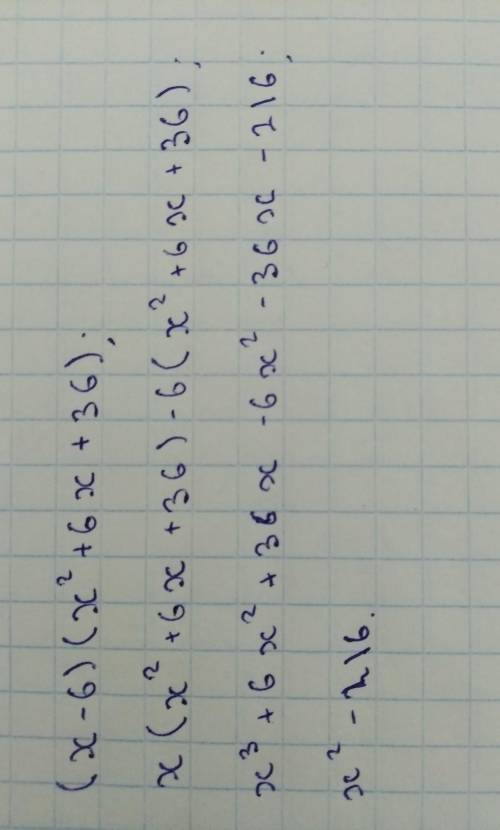 (x-6)(x²+6x+36);
x(x²+6x+36)-6(x²+6x+36);
x³+6x²+36x-6x²-36x-216;
x²-216.